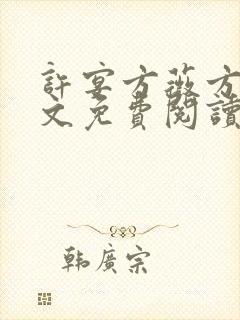 許宴方薇方
文免費閱讀
韩廣宗